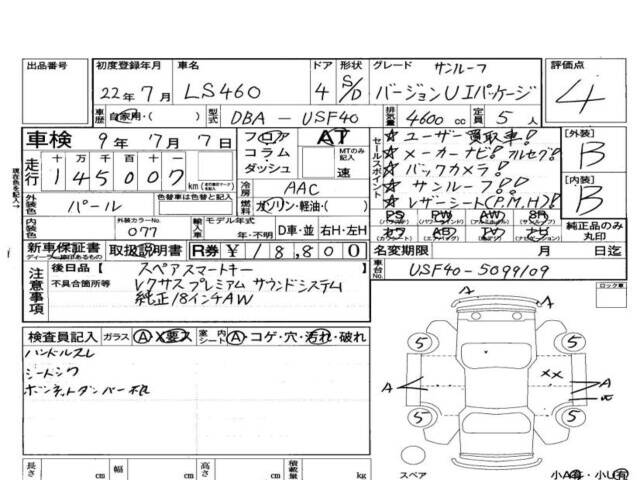 出品番号 初度登録年月 車名 ドア 形状 グレード サンルーフ 評価点
22年7月 LS460 4 S/D バージョンUIパッケージ 4
車歴 自家用・( ) 型式 DBA-USF40 排気量 4600cc 定員 5人
車検 9年7月7日 フロア AT
コラム MTのみ記入
ダッシュ 速
セールスポイント
☆ユーザー買取車!
☆メーカーナビ!フルセグ!
☆バックカメラ!
☆サンルーフ!!
☆レザーシート(P.M.H)!
[外装] B
[内装] B
現在色を記入→
走行 十 万 千 百 十 一
145000 km
冷房 AAC
燃料 ガソリン・軽油・( )
外装色 パール 色替車は色替と記入
内装色 外装カラーNo. 077 輸入車 モデル年式 年・不明 D車・並 右H・左H
PS PW AW SR
カワ AB TV ナビ
純正品のみ丸印
新車保証書 取扱説明書 R券 ¥18,800
ディーラー捺印あるもの
名変期限 月 日迄
車台No. USF40-5099109
注意事項
後日品【 スペアスマートキー
不具合箇所等 レクサスプレミアムサウンドシステム
純正18インチAW
ロック車
検査員記入 ガラス A・X要ス 室内シート A・コゲ・穴・汚れ・破れ
ハンドルスレ
シートシワ
ボンネットダンパー不良
A A
5 5
A XX A
5 5
スペア 小A有・小U有
長さ cm 幅 cm 高さ cm 積載量 kg